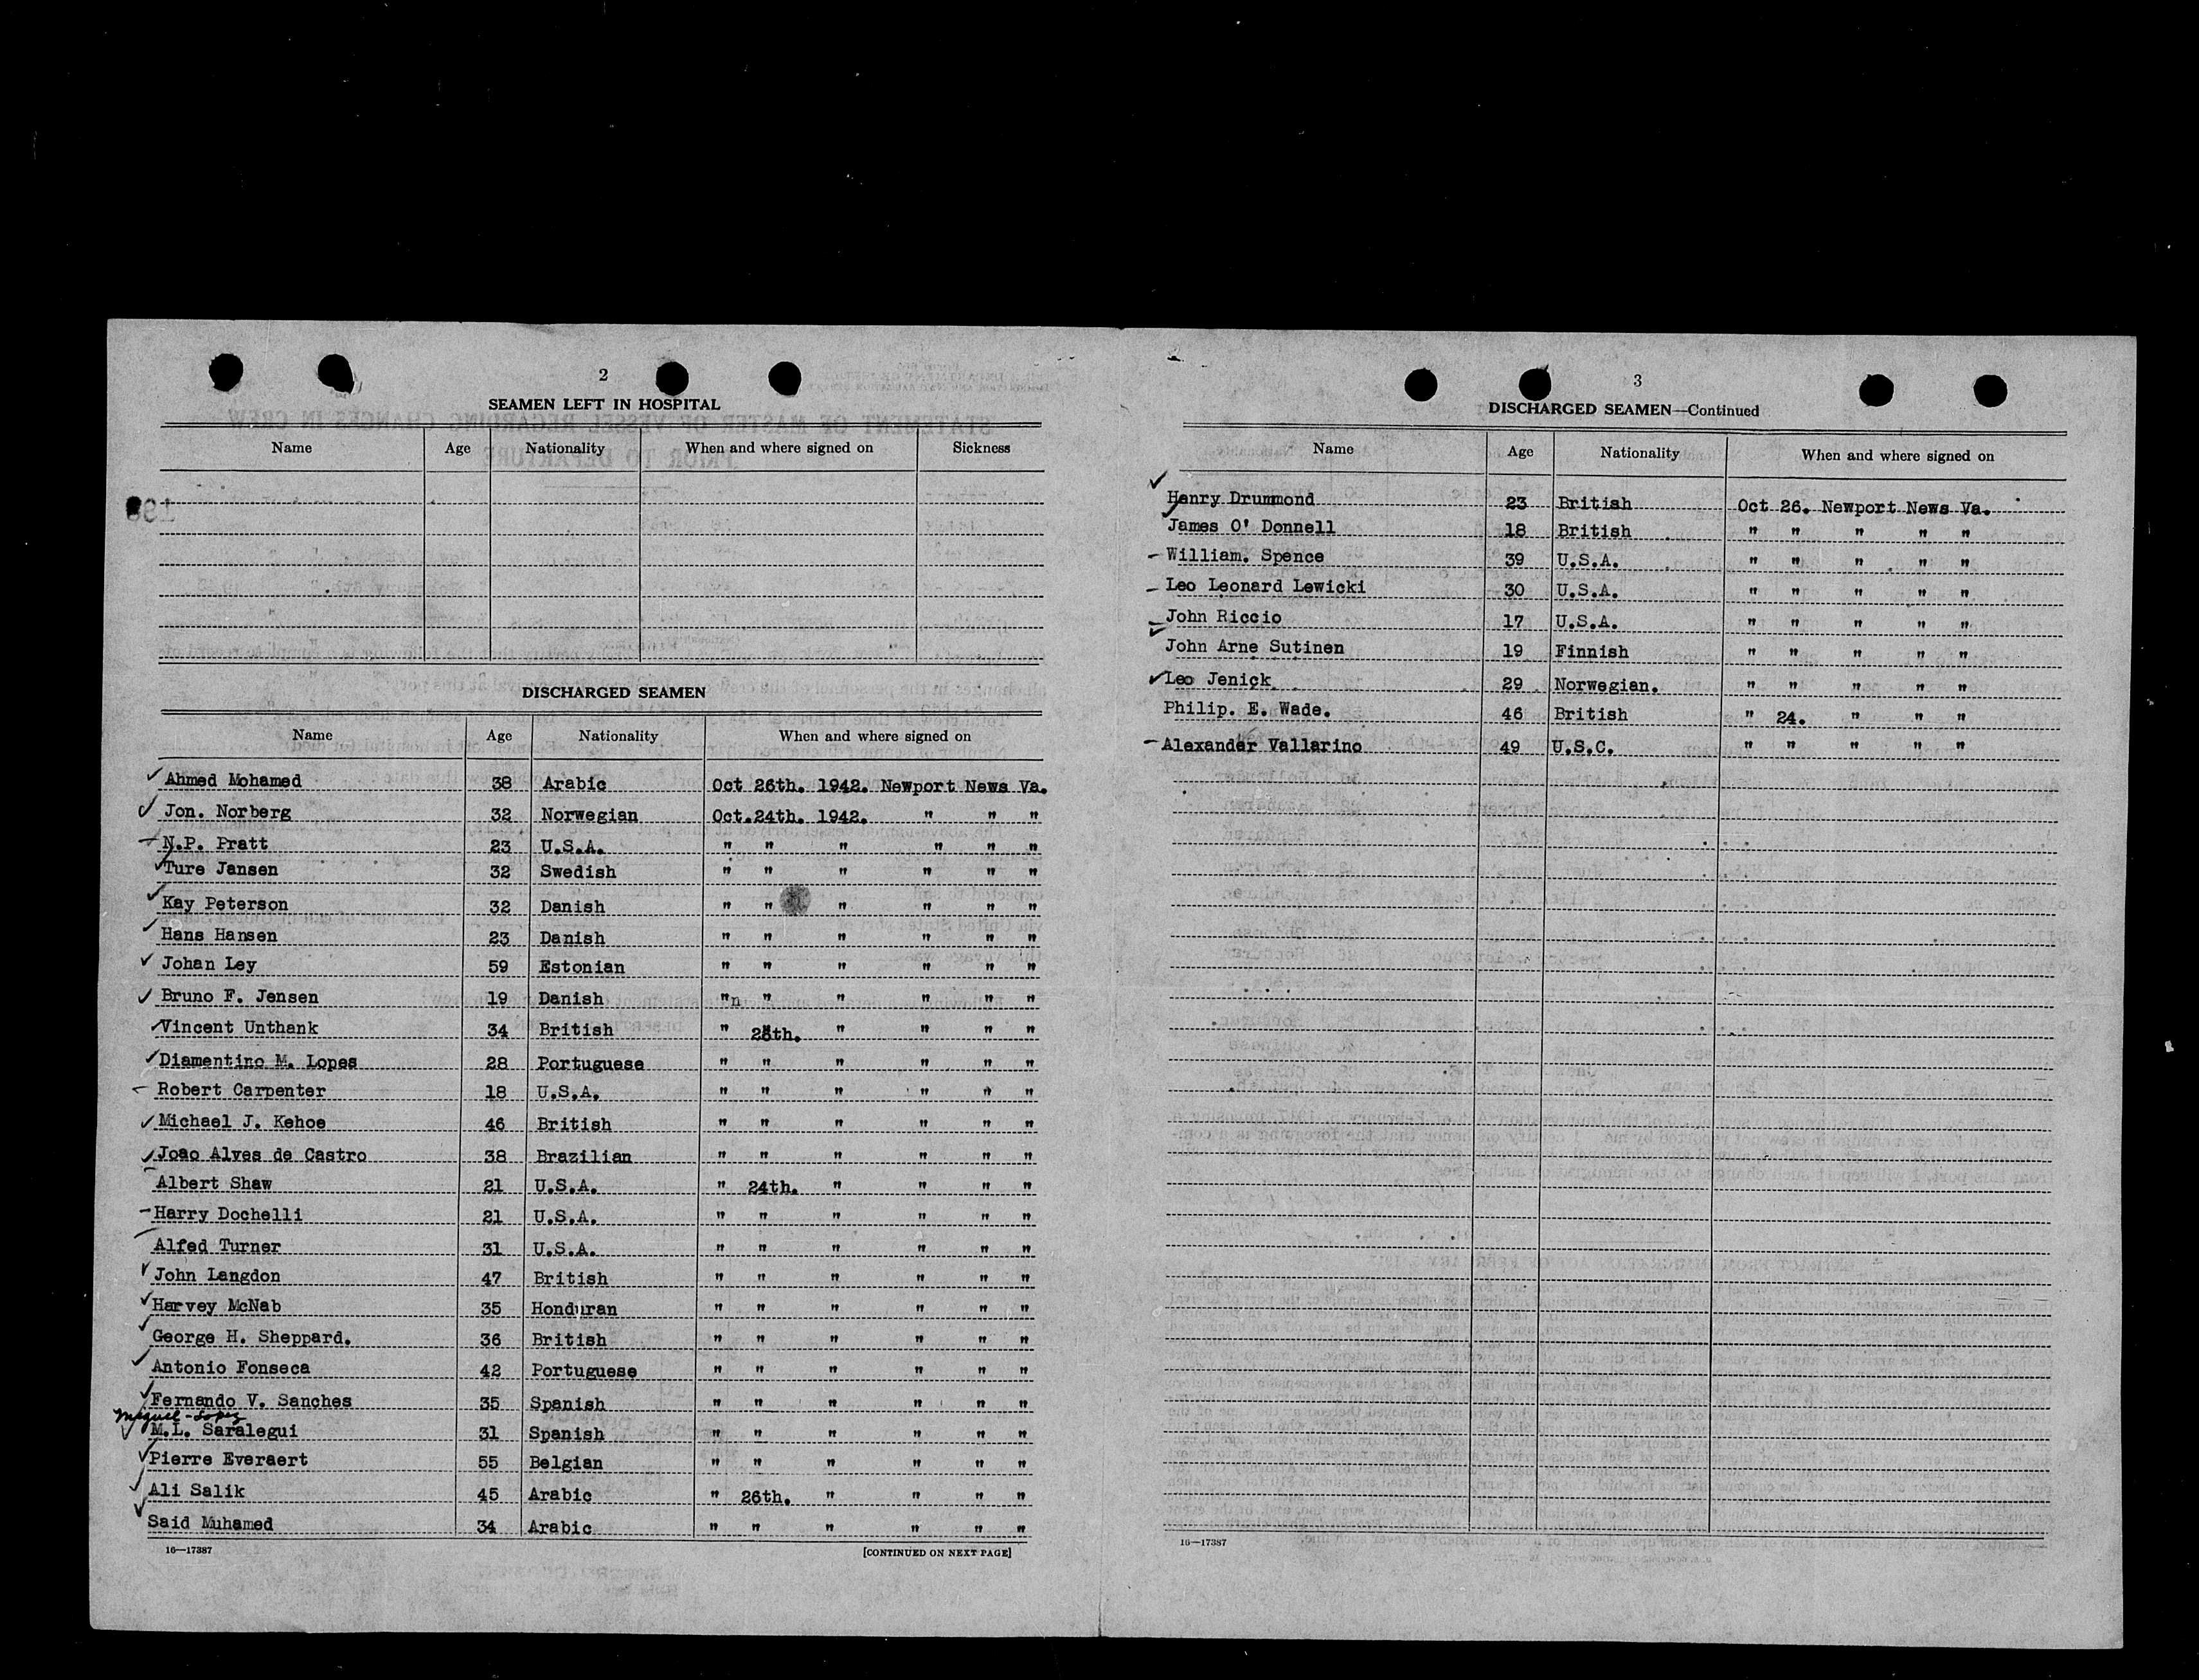 2
SEAMEN LEFT IN HOSPITAL
Name Age Nationality When and where signed on Sickness
DISCHARGED SEAMEN
Name Age Nationality When and where signed on
Ahmed Mohamed 38 Arabic Oct 26th. 1942. Newport News Va.
Jon. Norberg 32 Norwegian Oct.24th. 1942. " " "
N.P. Pratt 23 U.S.A. " " " " " "
Ture Jansen 32 Swedish " " " " " "
Kay Peterson 32 Danish " " " " " "
Hans Hansen 23 Danish " " " " " "
Johan Ley 59 Estonian " " " " " "
Bruno F. Jensen 19 Danish "n " " " " "
Vincent Unthank 34 British " 28th. " " " "
Diamentino M. Lopes 28 Portuguese " " " " " "
Robert Carpenter 18 U.S.A. " " " " " "
Michael J. Kehoe 46 British " " " " " "
Joao Alves de Castro 38 Brazilian " " " " " "
Albert Shaw 21 U.S.A. " 24th. " " " "
Harry Dochelli 21 U.S.A. " " " " " "
Alfed Turner 31 U.S.A. " " " " " "
John Langdon 47 British " " " " " "
Harvey McNab 35 Honduran " " " " " "
George H. Sheppard. 36 British " " " " " "
Antonio Fonseca 42 Portuguese " " " " " "
Fernando V. Sanches 35 Spanish " " " " " "
Miguel-Lopez
M.L. Saralegui 31 Spanish " " " " " "
Pierre Everaert 55 Belgian " " " " " "
Ali Salik 45 Arabic " 26th. " " " "
Said Muhamed 34 Arabic " " " " " "
16—17387 [CONTINUED ON NEXT PAGE]
3
DISCHARGED SEAMEN—Continued
Name Age Nationality When and where signed on
Henry Drummond 23 British Oct 26. Newport News Va.
James O' Donnell 18 British " " " " "
William. Spence 39 U.S.A. " " " " "
Leo Leonard Lewicki 30 U.S.A. " " " " "
John Riccio 17 U.S.A. " " " " "
John Arne Sutinen 19 Finnish " " " " "
Leo Jenick 29 Norwegian. " " " " "
Philip. E. Wade. 46 British " 24. " " "
Alexander Vallarino 49 U.S.C. " " " " "
16—17387